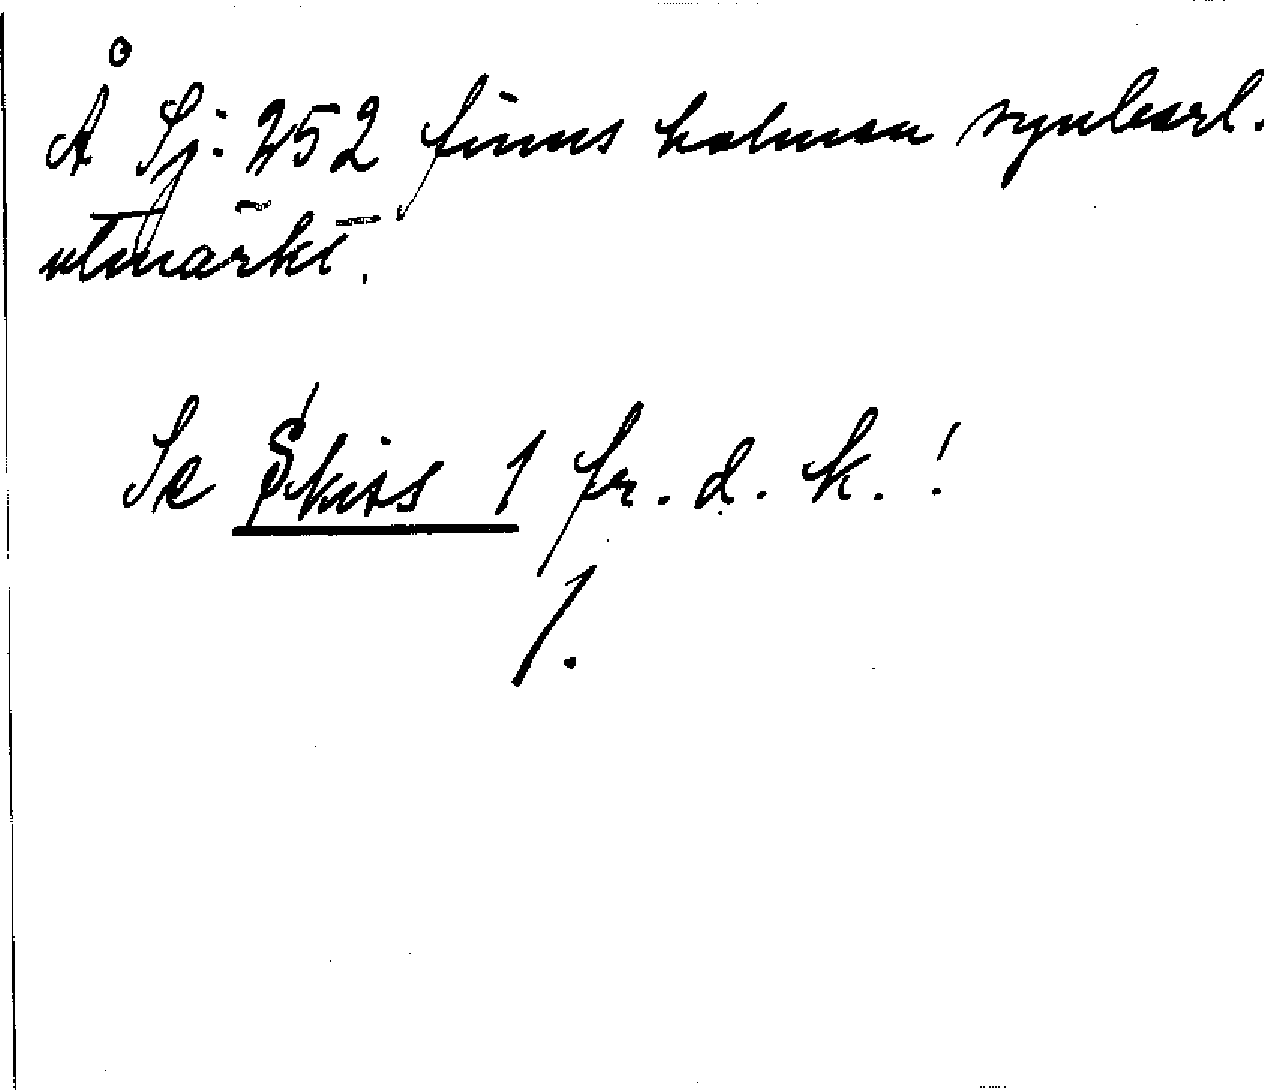 Å Sj. 252 finns holmen synbarl.
utmärkt.
Se Skiss 1 fr. d. k. !
/.